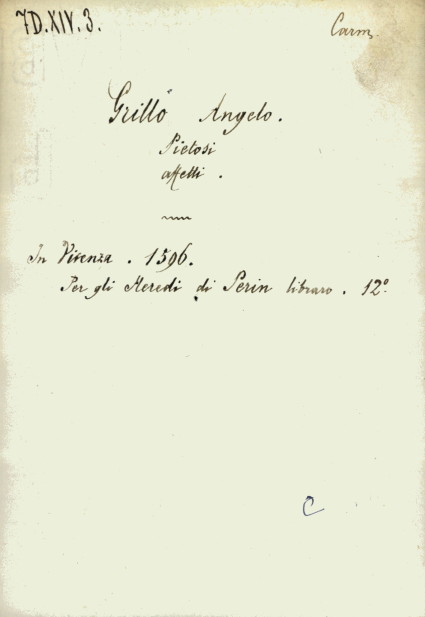 7D.XIV.3.
Carm.
Grillo Angelo.
Pietosi
affetti.
In Vicenza. 1596.
Per gli Heredi di Perin libraro. 12º
C